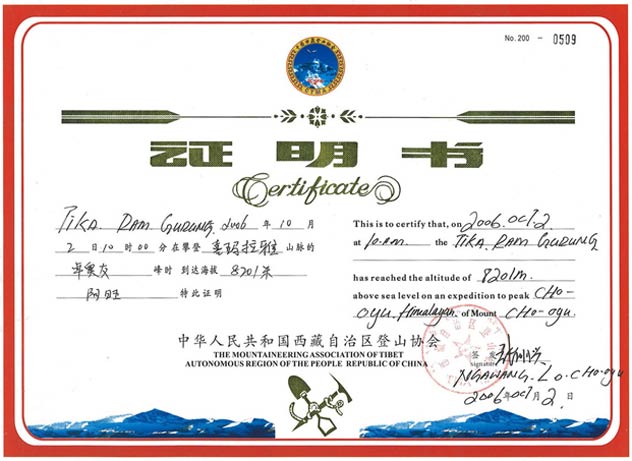 No. 200 - 0509
证明书
Certificate
TIKA RAM GURUNG. 2006 年 10 月
2 日 10 时 00 分 在攀登 喜玛拉雅 山脉的
卓奥友 峰时 到达海拔 8201米
阿旺 特此证明
This is to certify that, on 2006.OCT.2
at 10.am. the TIKA RAM GURUNG
has reached the altitude of 8201m.
above sea level on an expedition to peak CHO-
oyu, Himalayan. of Mount CHO-oyu
中华人民共和国西藏自治区登山协会
THE MOUNTAINEERING ASSOCIATION OF TIBET
AUTONOMOUS REGION OF THE PEOPLE REPUBLIC OF CHINA
签发
signature
NGAWANG. LO. CHO-oyu
2006 OCT 2 日